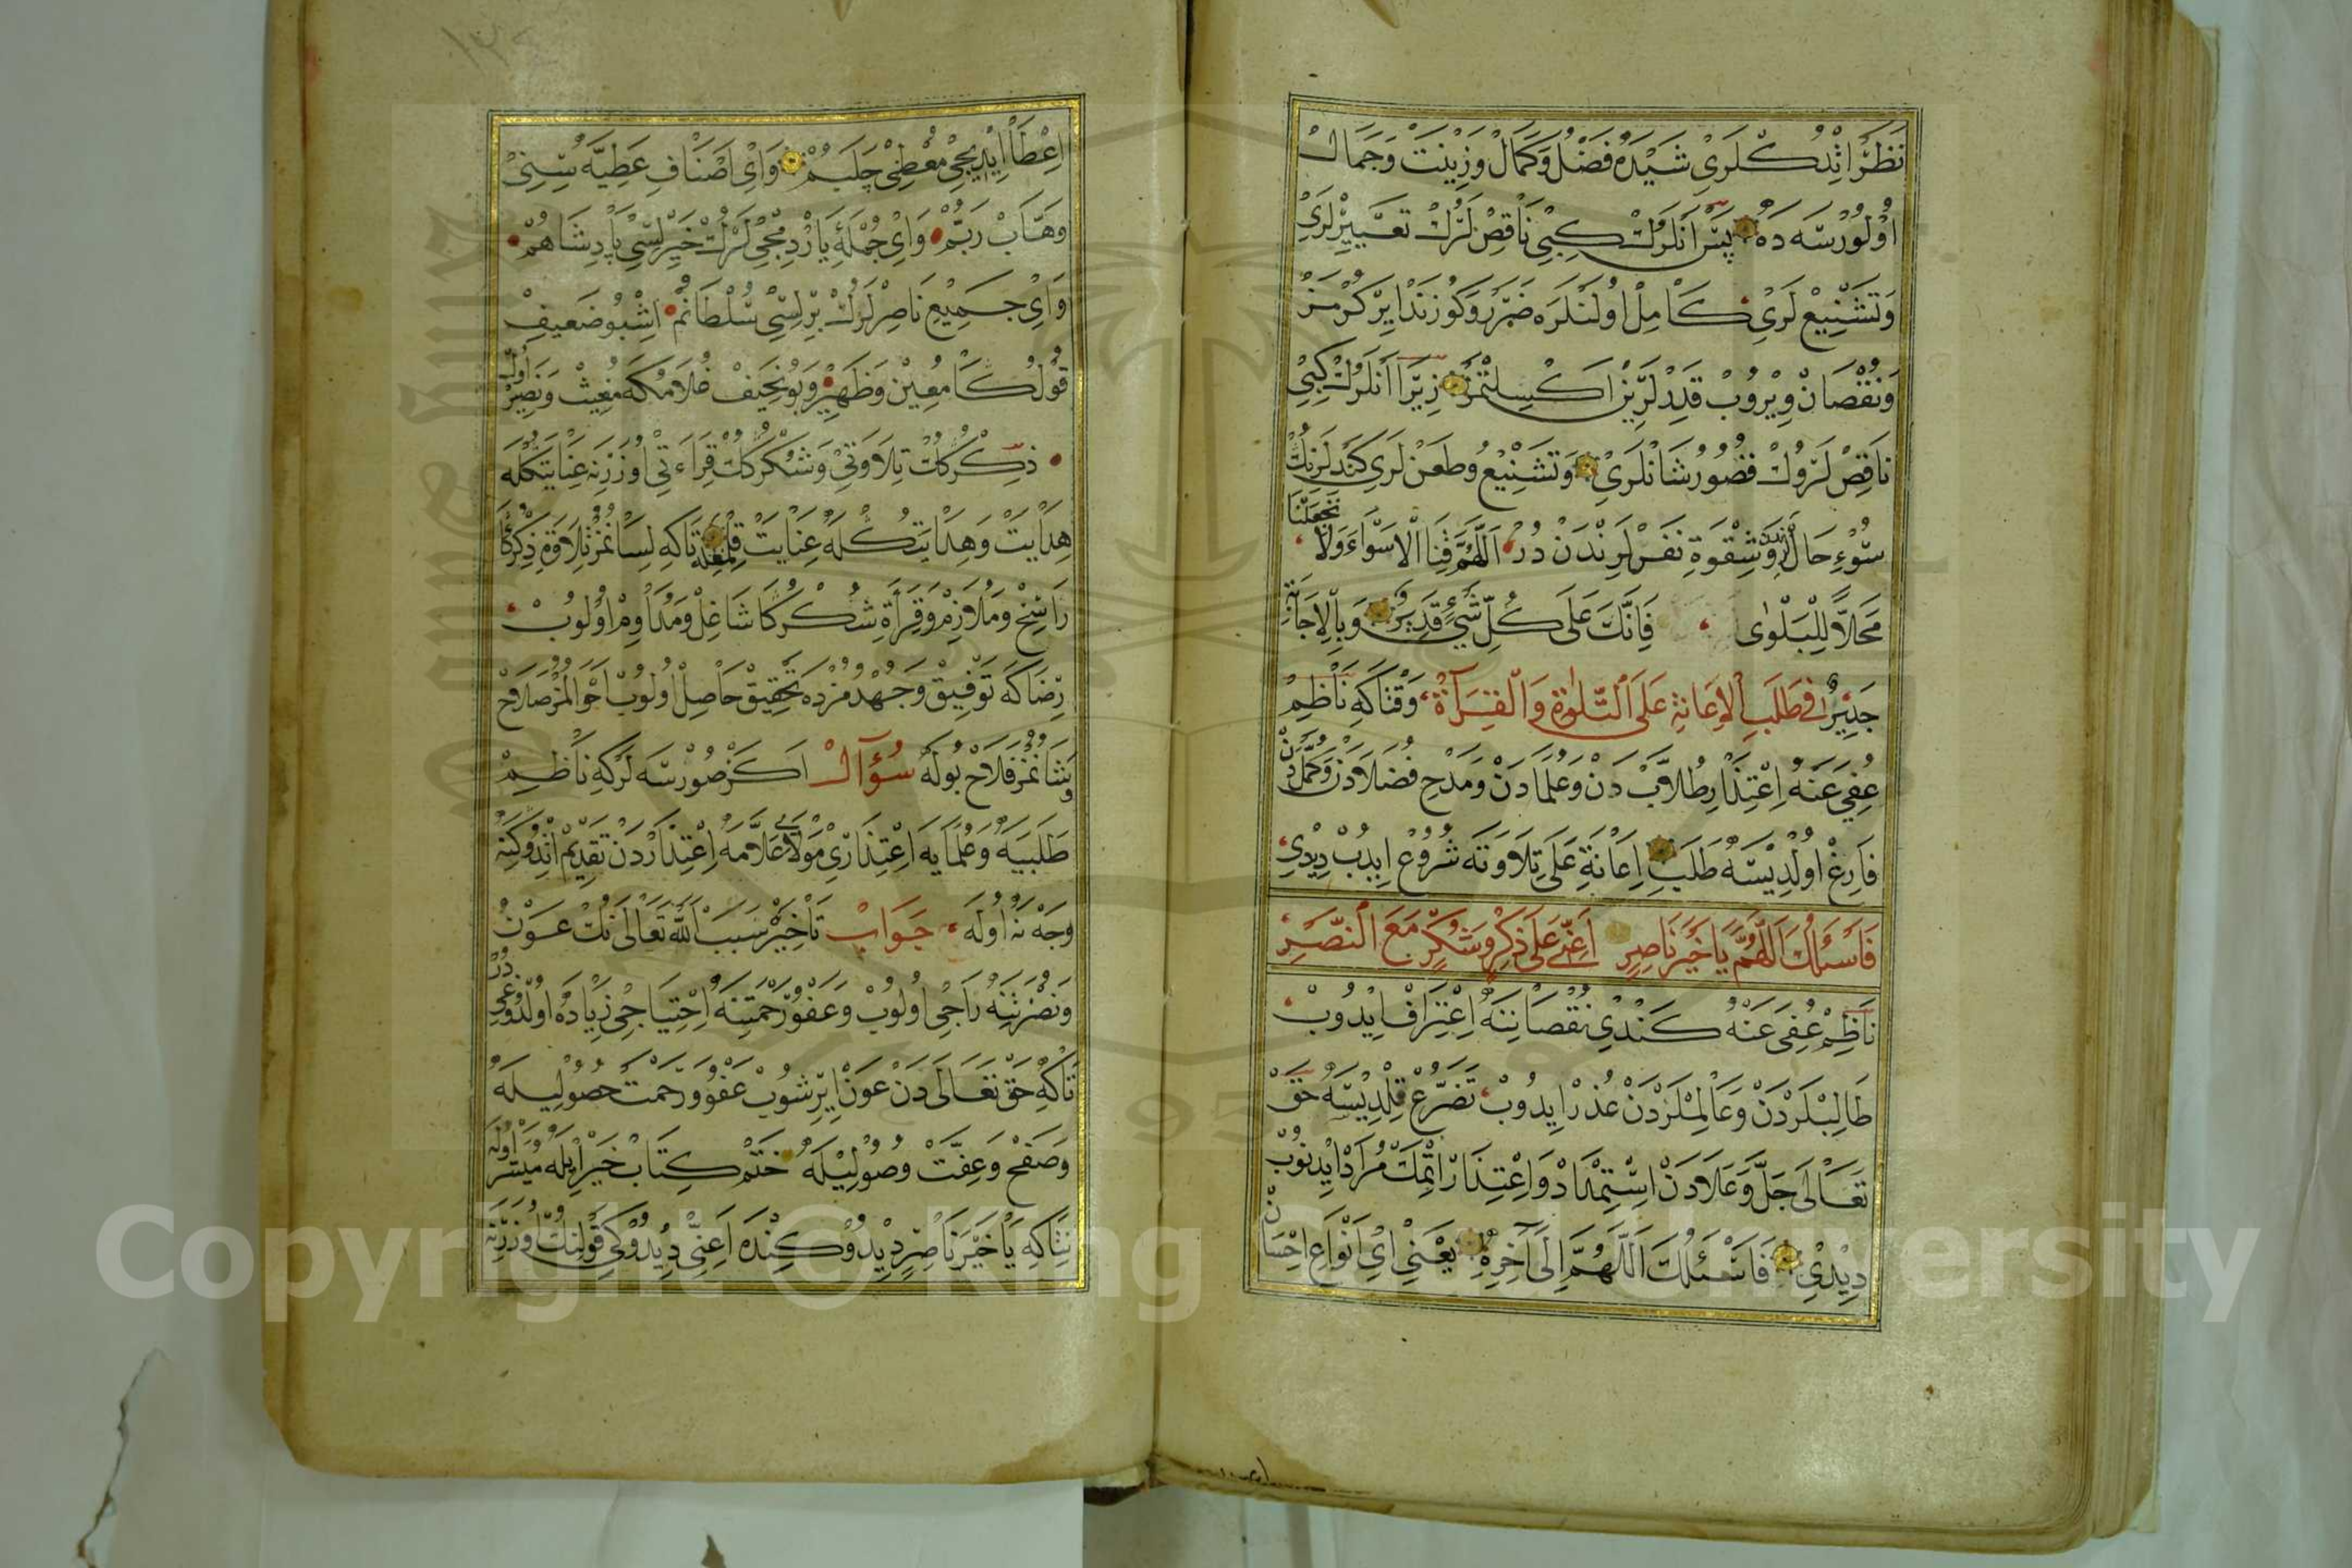 نَظَرْ اتْدُكْلَرِيْ شَيْدَهْ فَضْلُ وَكَمَالْ وَزِينَتْ وَجَمَالْ
اوْلُورْسَه دَهْ پَسْ اَنْلَرُكْ كِبِيْ نَاقِصْلَرُكْ تَعْيِيْرْلَرِيْ
وَتَشْنِيْعْ لَرِيْ كَامِلْ اوُلَنْلَرَه ضَرَرْ وَكُوزَنْد ايِرْكُرْمَزْ
وَنُقْصَانْ وِيْرُوبْ قَدْرْلَرِيْنْ اَكْسِلْتْمَزْ زِيْرَا اَنْلَرُكْ كِبِيْ
نَاقِصْ لَرُوكْ قُصُورْ شَانْلَرِيْ وَتَشْنِيْعْ وَطَعْنْ لَرِيْ كَنْدُلَرِنِكْ
سُوْءِ حَالْلَرِنْدَنْ وَشِقْوَةِ نَفْسْلَرِنْدَنْ دُرْ اَللّٰهُمَّ قِنَا الْاَسْوَاءَ وَلَا تَجْعَلْنَا
مَحَلاًّ لِلْبَلْوٰى فَاِنَّكَ عَلٰى كُلِّ شَيْءٍ قَدِيْرٌ وَبِالْاِجَابَةِ
جَدِيْرٌ فِي طَلَبِ الْاِعَانَةِ عَلَى التِّلَاوَةِ وَالْقِرَاءَةِ وَقْتَاكَهِ نَاظِمْ
عُفِيَ عَنْهُ اِعْتِذَارِ طُلَّابْ دَنْ وَعُلَمَادَنْ وَمَدْحِ فُضَلَادَنْ وَكُمَّلْ دَنْ
فَارِغْ اوُلْدِيْسَهْ طَلَبِ اِعَانَةِ عَلَى تِلَاوَتَه شُرُوعْ ايِدُبْ دِيْدِيْ
فَاَسْئَلُكَ اللّٰهُمَّ يَا خَيْرَ نَاصِرٍ اَعِنِّي عَلَى ذِكْرٍ وَشُكْرٍ مَعَ النَّصْرِ
نَاظِمْ عُفِيَ عَنْهُ كَنْدُيْ نُقْصَانِنَه اِعْتِرَافْ ايِدُوبْ
طَالِبْلَرْدَنْ وَعَالِمْلَرْدَنْ عُذْرْ ايِدُوبْ تَضَرُّعْ قِلْدِيْسَهْ حَقْ
تَعَالٰى جَلَّ وَعَلَادَنْ اِسْتِمْدَادْ وَاِعْتِذَارْ اِتْمَكْ مُرَادْ ايِدِنُوبْ
دِيْدِيْ فَاَسْئَلُكَ اَللّٰهُمَّ اِلٰى آخِرِهِ يَعْنِيْ ايْ اَنْوَاعِ اِحْسَانْ
اِعْطَا اَيْدِيْجِيْ مُعْطِيْ چَلَبُمْ وَايْ اَصْنَافِ عَطِيَّه سِنِيْ
وَهَّابْ رَبُّمْ وَايْ جُمْلَهِٔ يَارْدِمْجِيْ لَرُكْ خَيِرْلِسِيْ پَادِشَاهُمْ
وَايْ جَمِيْعِ نَاصِرْلَرُكْ بِرْلِسِيْ سُلْطَانُمْ اِشْبُو ضَعِيفْ
قُولُكَا مُعِيْنْ وَظَهِيْرْ وَبُو نَحِيَفْ غُلَامُكَه مُغِيثْ وَنَصِيْرْ اُولْ
ذِكْرُكُكْ تِلَاوَتِيْ وَشُكْرُكُكْ قِرَاءَتِيْ اوُزَرَنِه عِنَايَتُكْلَه
هِدَايَتْ وَهِدَايَتُكْلَهْ عِنَايَتْ قِلْغِلْ تَاكَهِ لِسَانُمْزْ تِلَاوَةِ ذِكْرُكَا
رَاسِخْ وَمُلَازِمْ وَقِرَاءَةِ شُكْرُكَا شَاغِلْ وَمُدَاوِمْ اوُلُوبْ
رِضَاكَه تَوْفِيْقْ وَجُهْدُمْزْدَه تَحْقِيقْ حَاصِلْ اوُلُوبْ اَحْوَالُمْزْ صَلَاحْ
وَشَانُمْزْ فَلَاحْ بُولَهْ سُؤَالْ اَكَرْ صُورْسَه لَرْكَهِ نَاظِمْ
طَلَبَيَهْ وَعُلَمَايَه اِعْتِذَارِيْ مَوْلَايْ عَلَّامَه اِعْتِذَارْدَنْ تَقْدِيمْ اتْدُوكِنَه
وَجْه نَه اوُلَه جَوَابْ تَأْخِيرْ سَبَبْ اَللّٰه تَعَالٰى نُكْ عَوْنْ
وَنَصْرِنَه رَاجِيْ اوُلُوبْ وَعَفْوُ رَحْمَتِنَه اِحْتِيَاجِيْ زِيَادَهْ اوُلْدُوغِيْدُرْ
تَاكَهِ حَقْ تَعَالٰى دَنْ عَوْنْ ايِرِشُوبْ عَفْوُ وَرَحْمَتْ حُصُولِيلَه
وَصَفْحْ وَعِفَّتْ وُصُولِيْلَهْ خَتْمِ كِتَابْ خَيْرْ اِيْلَه مُيَسَّرْ اوُلَه
نِتَاكَهِ يَا خَيْرَ نَاصِرٍ دِيْدُوكِنْدَه اَعِنِّي دِيْدُوكِيْ قَولِنُكْ اوُزَرِنَه
Copyright © King Saud University